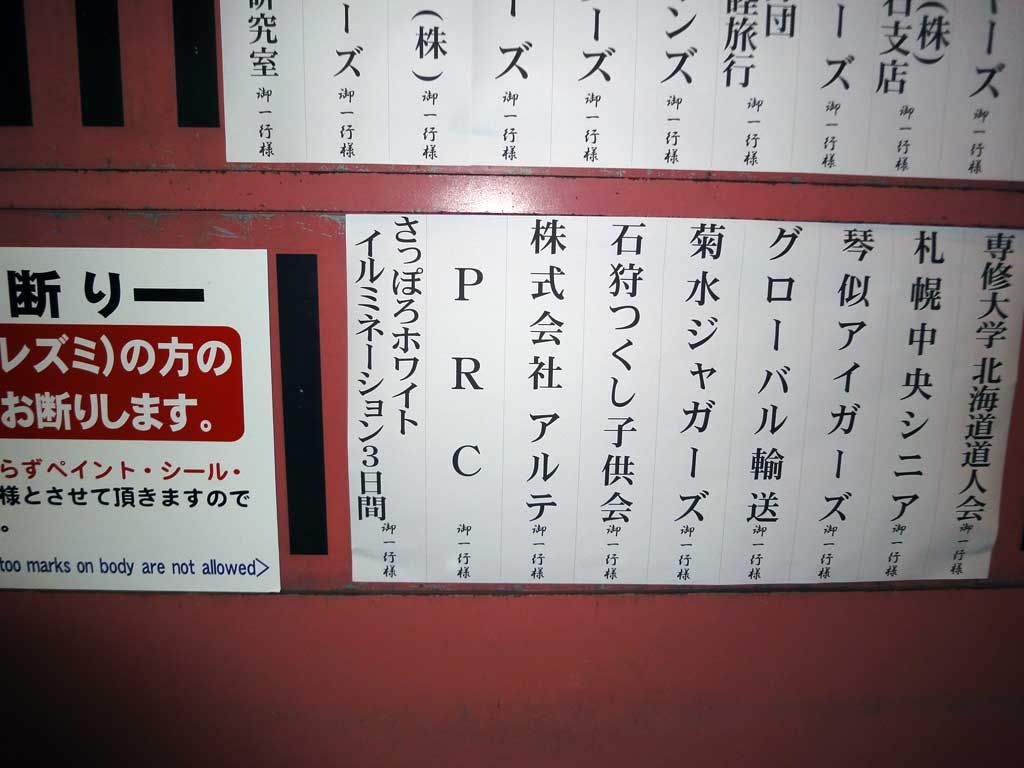 ーズ 御一行様
(株) 御一行様
石支店
ーズ 御一行様
団
陸旅行 御一行様
ンズ 御一行様
ーズ 御一行様
ーズ 御一行様
(株) 御一行様
ーズ 御一行様
研究室 御一行様
専修大学 北海道道人会 御一行様
札幌中央シニア 御一行様
琴似アイガーズ 御一行様
グローバル輸送 御一行様
菊水ジャガーズ 御一行様
石狩つくし子供会 御一行様
株式会社アルテ 御一行様
PRC 御一行様
さっぽろホワイト
イルミネーション3日間 御一行様
断りー
レズミ)の方の
お断りします。
らずペイント・シール・
様とさせて頂きますので
。
too marks on body are not allowed>